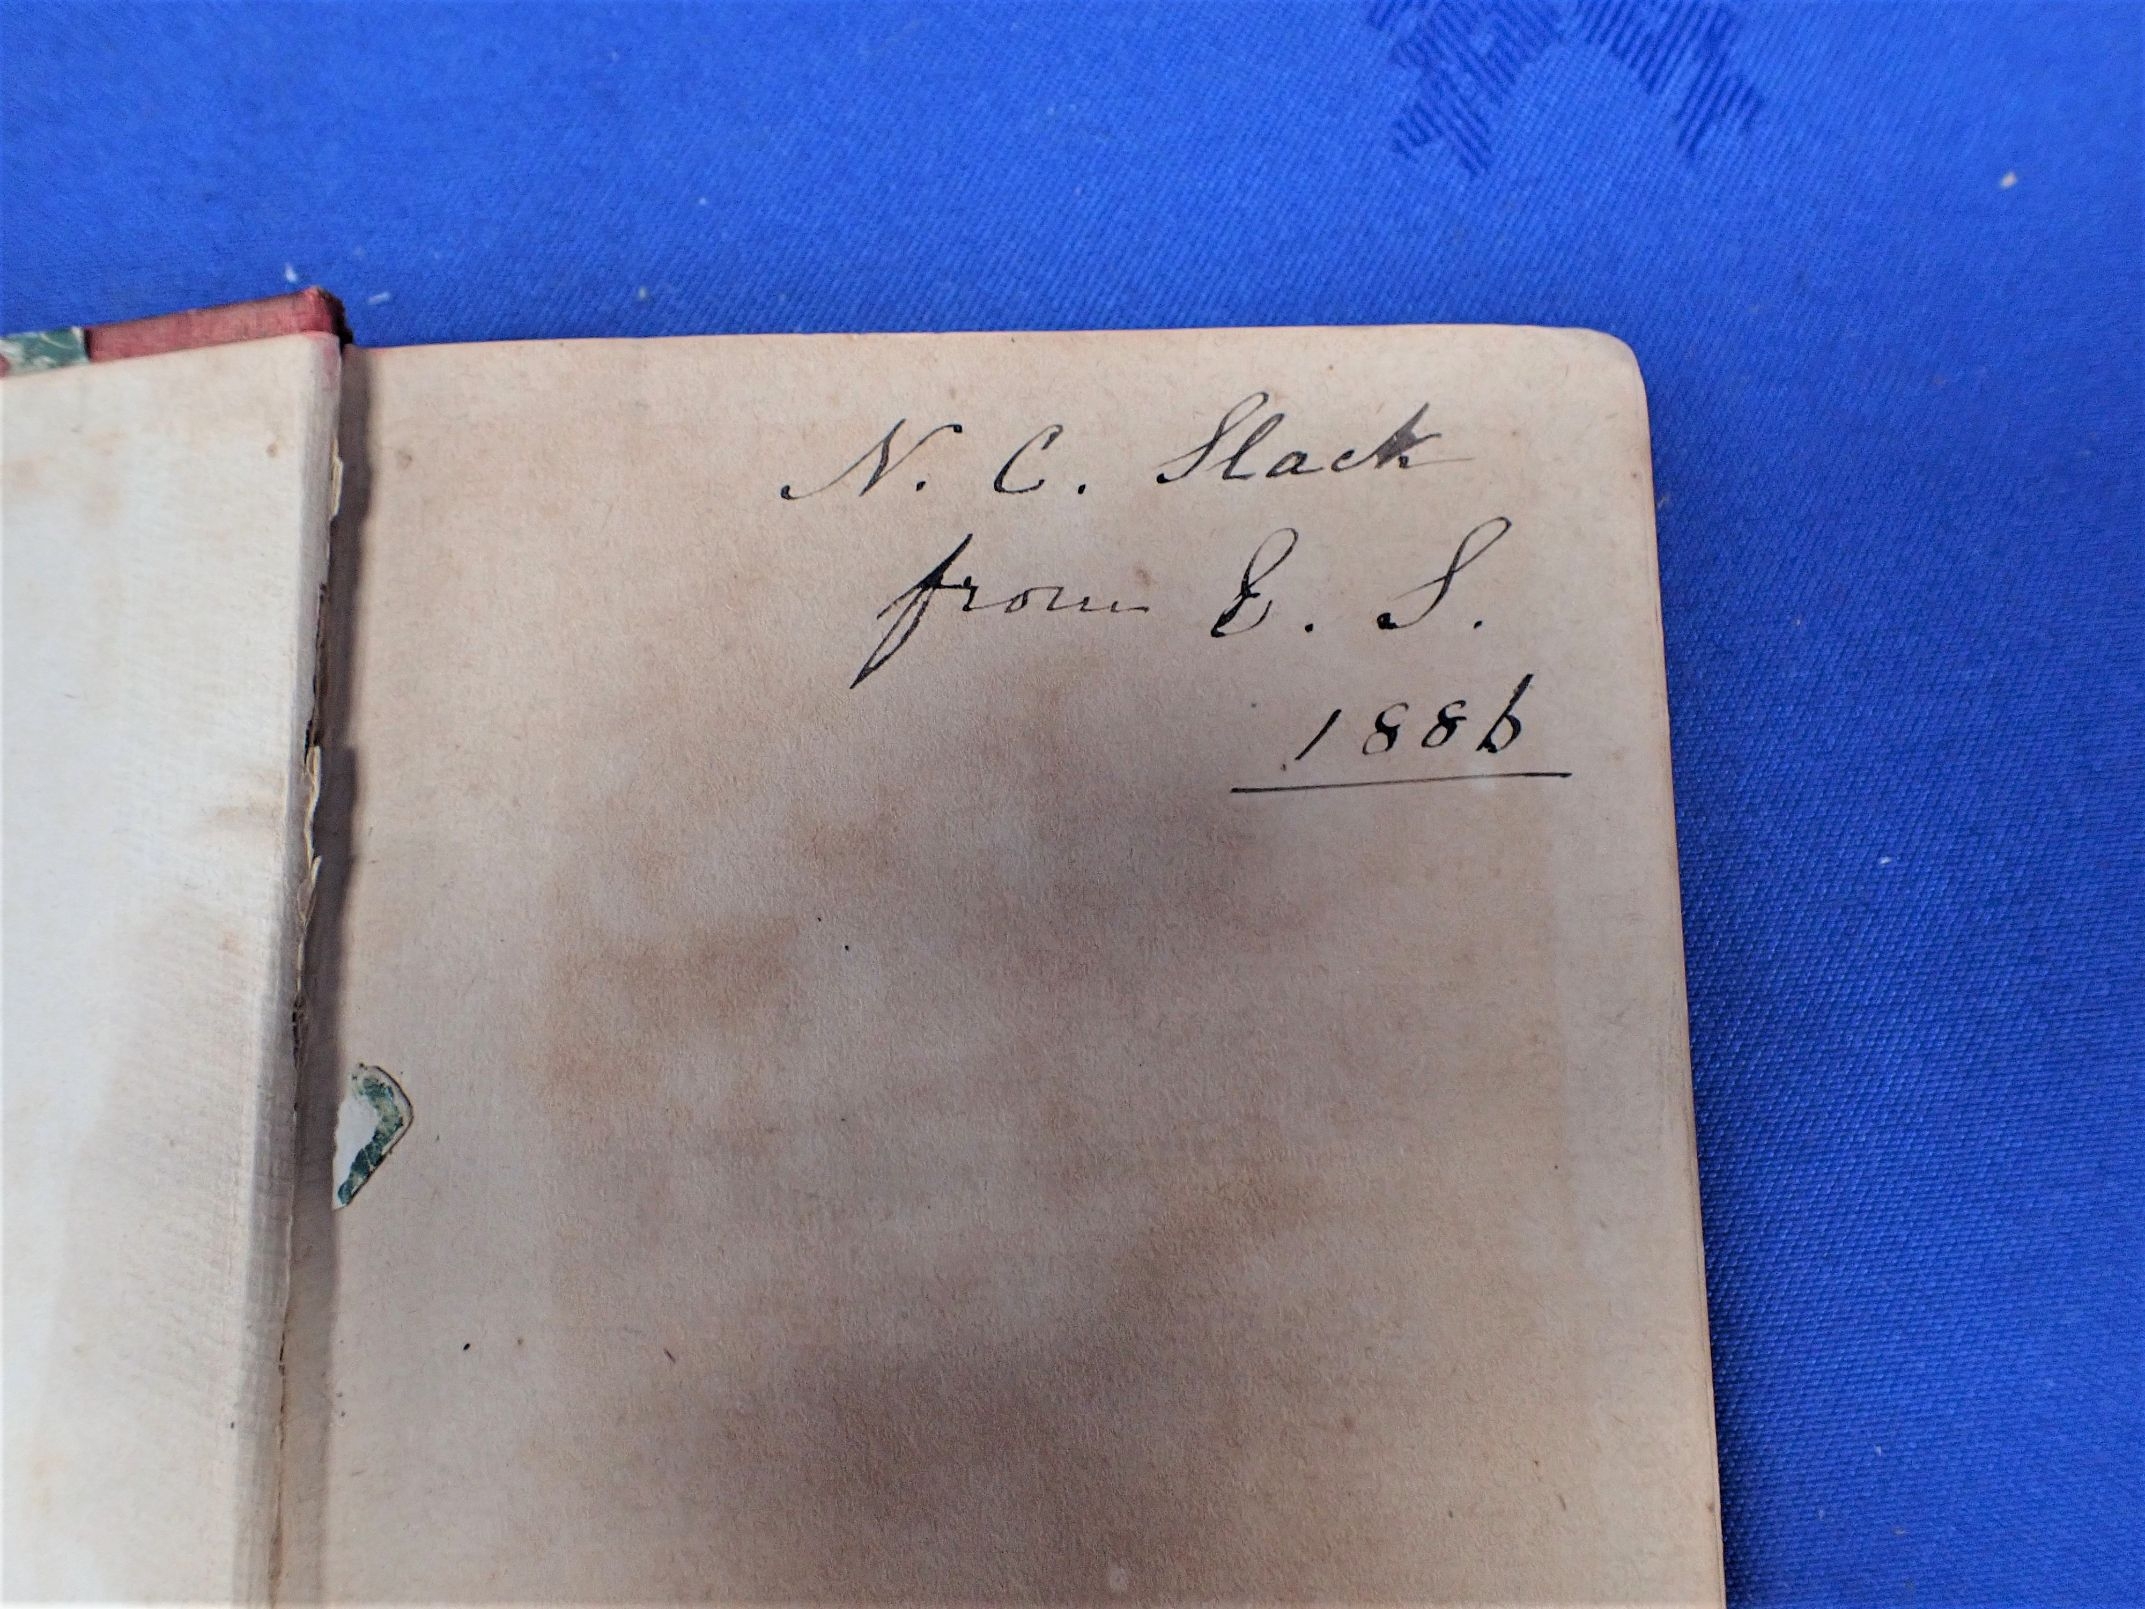 N. C. Slack
from E. S.
1886